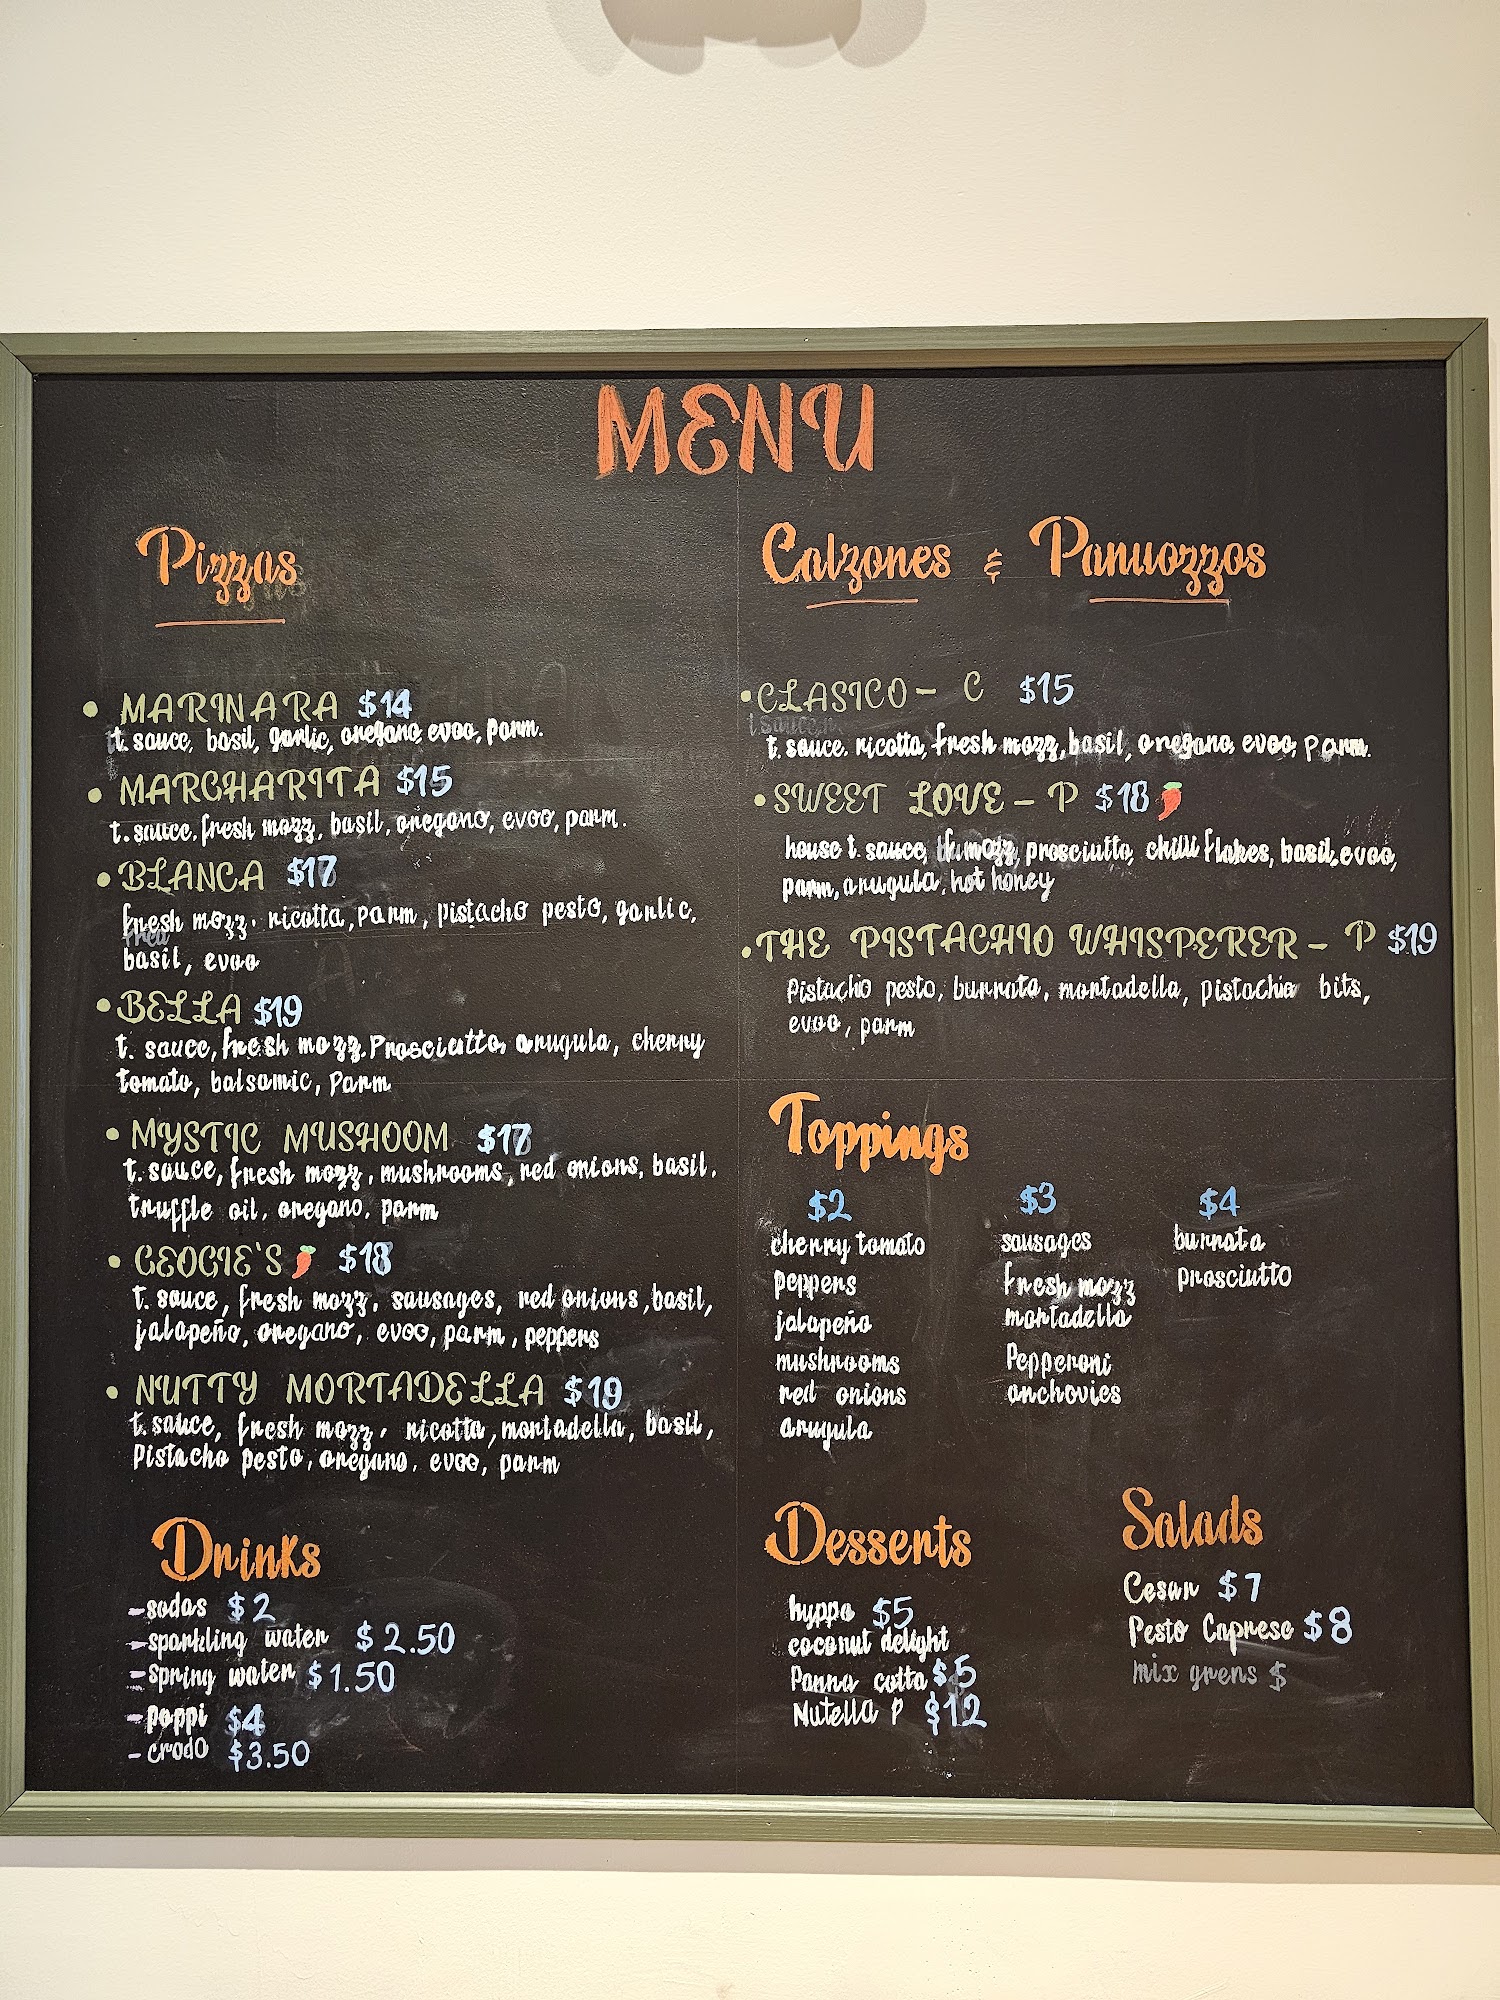 MENU
Pizzas
• MARINARA $14
t. sauce, basil, garlic, oregano, evoo, parm.
• MARGHARITA $15
t. sauce, fresh mozz, basil, oregano, evoo, parm.
• BLANCA $17
fresh mozz. ricotta, parm, pistacho pesto, garlic,
basil, evoo
• BELLA $19
t. sauce, fresh mozz. Prosciutto, arugula, cherry
tomato, balsamic, Parm
• MYSTIC MUSHOOM $17
t. sauce, fresh mozz, mushrooms, red onions, basil,
truffle oil, oregano, parm
• GEOGIE'S $18
t. sauce, fresh mozz, sausages, red onions, basil,
jalapeño, oregano, evoo, parm, peppers
• NUTTY MORTADELLA $19
t. sauce, fresh mozz, ricotta, mortadella, basil,
Pistacho pesto, oregano, evoo, parm
Drinks
-sodas $2
-sparkling water $2.50
-spring water $1.50
-poppi $4
-crodo $3.50
Calzones & Panuozzos
• CLASICO - C $15
t. sauce. ricotta, fresh mozz, basil, oregano, evoo, parm.
• SWEET LOVE - P $18
house t. sauce, mozz, prosciutto, chilli flakes, basil, evoo,
parm, arugula, hot honey
• THE PISTACHIO WHISPERER - P $19
Pistachio pesto, burrata, mortadella, pistachio bits,
evoo, parm
Toppings
$2
cherry tomato
peppers
jalapeño
mushrooms
red onions
arugula
$3
sausages
fresh mozz
mortadella
Pepperoni
anchovies
$4
burrata
prosciutto
Desserts
hyppo $5
coconut delight
Panna cotta $5
Nutella P $12
Salads
Cesar $7
Pesto Caprese $8
mix grens $